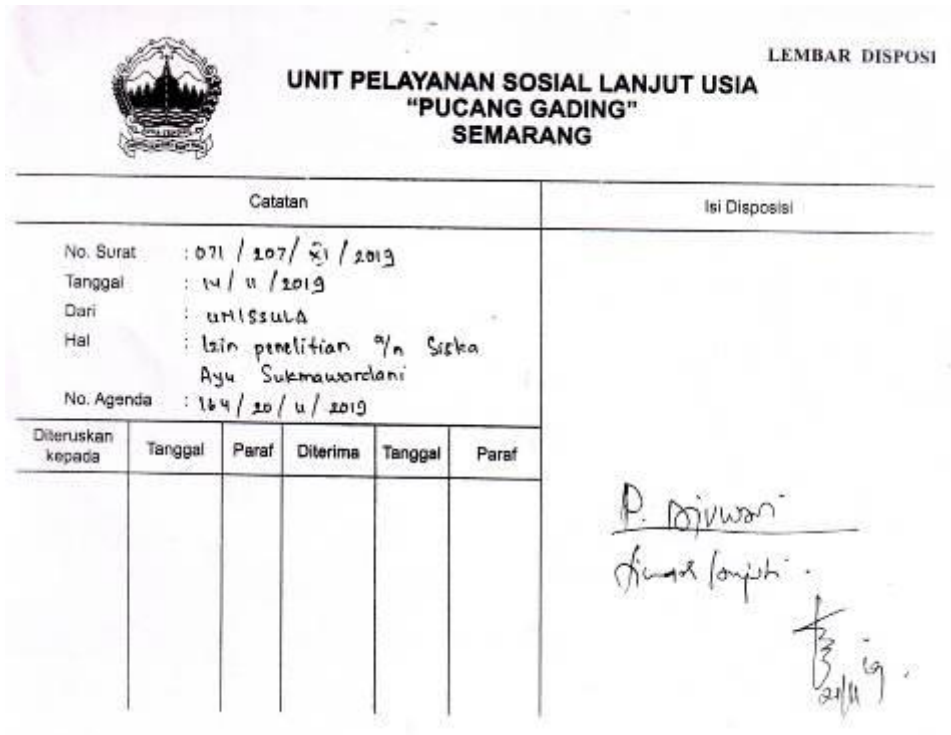 LEMBAR DISPOSI
UNIT PELAYANAN SOSIAL LANJUT USIA
“PUCANG GADING”
SEMARANG
Catatan
Isi Disposisi
No. Surat : 071 / 207/ XI / 2019
Tanggal : 14 / 11 / 2019
Dari : UNISSULA
Hal : Izin penelitian a/n Siska
Ayu Sukmawardani
No. Agenda : 164 / 20 / 11 / 2019
Diteruskan kepada Tanggal Paraf Diterima Tanggal Paraf
P.
21/11 19.